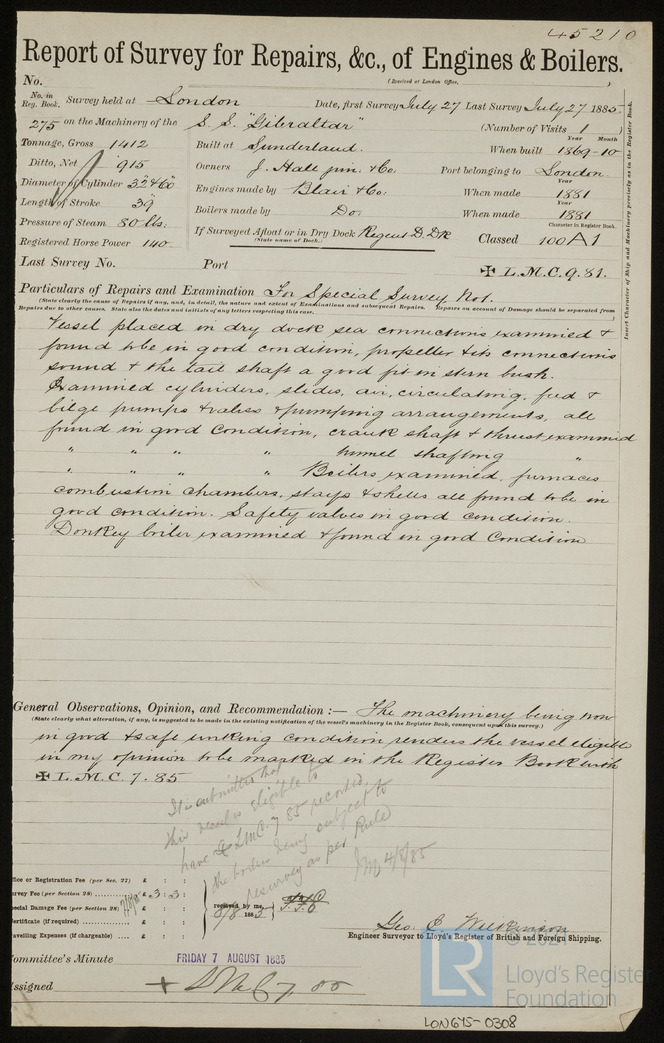 45210
Report of Survey for Repairs, &c., of Engines & Boilers.
No.
(Received at London Office,
No. in Reg. Book. Survey held at London Date, first Survey July 27 Last Survey July 27 1885
275 on the Machinery of the S. S. "Gibraltar" (Number of Visits 1)
Tonnage, Gross 1412 Built at Sunderland. When built Year Month 1869-10
Ditto, Net 915 Owners J. Hall jun. & Co. Port belonging to London
Diameter of Cylinder 32" & 60" Engines made by Blair & Co. When made Year 1881
Length of Stroke 39 Boilers made by Do. When made Year 1881
Pressure of Steam 80 lbs. If Surveyed Afloat or in Dry Dock Regent D. Dk Classed Character in Register Book. 100A1
(State name of Dock.)
Registered Horse Power 140
Last Survey No. Port ✠ L.M.C. 9.81.
Particulars of Repairs and Examination For Special Survey No 1.
(State clearly the cause of Repairs if any, and, in detail, the nature and extent of Examinations and subsequent Repairs. Repairs on account of Damage should be separated from
Repairs due to other causes. State also the dates and initials of any letters respecting this case.)
Vessel placed on dry dock sea connections examined &
found to be in good condition, propeller & its connections
sound & the tail shaft a good fit in stern bush.
Examined cylinders, slides, air, circulating, feed &
bilge pumps & valves & pumping arrangements, all
found in good Condition, crank shaft & thrust examined
" " " " tunnel shafting "
" " " " Boilers examined, furnaces
combustion chambers, stays & shells all found to be in
good condition. Safety valves in good condition.
Donkey boiler examined & found in good Condition
Insert Character of Ship and Machinery precisely as in the Register Book.
General Observations, Opinion, and Recommendation :— The machinery being now
(State clearly what alteration, if any, is suggested to be made in the existing notification of the vessel's machinery in the Register Book, consequent upon this survey.)
in good & safe working condition renders the vessel eligible
in my opinion to be marked in the Register Book with
✠ L.M.C. 7.85
It is submitted that
this vessel is eligible to
have ✠ LMC. 7 85 recorded,
the boilers being subject to
resurvey as per Rule
4/8/85
Office or Registration Fee (per Sec. 27) £ : :
Survey Fee (per Section 28) £ 3 : 3 :
Special Damage Fee (per Section 28) £ : :
Certificate (if required) £ : :
Travelling Expenses (if chargeable) £ : :
received by me,
8/8 1885
Geo. C. Wilkinson
Engineer Surveyor to Lloyd's Register of British and Foreign Shipping.
Committee's Minute FRIDAY 7 AUGUST 1885
Assigned + LMC 7.85
© 2021
LR
Lloyd's Register
Foundation
LON675-0308